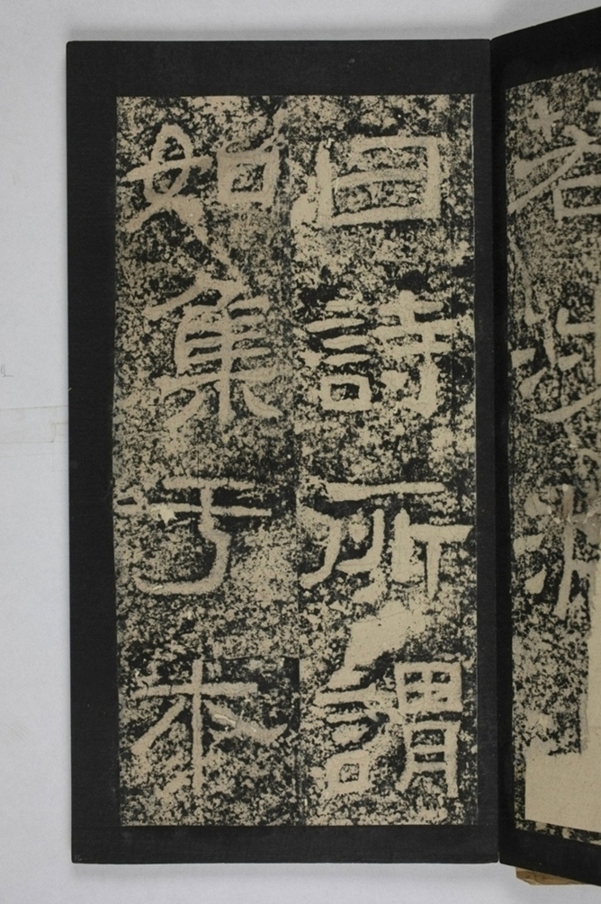 若
曰詩所謂
如集于木